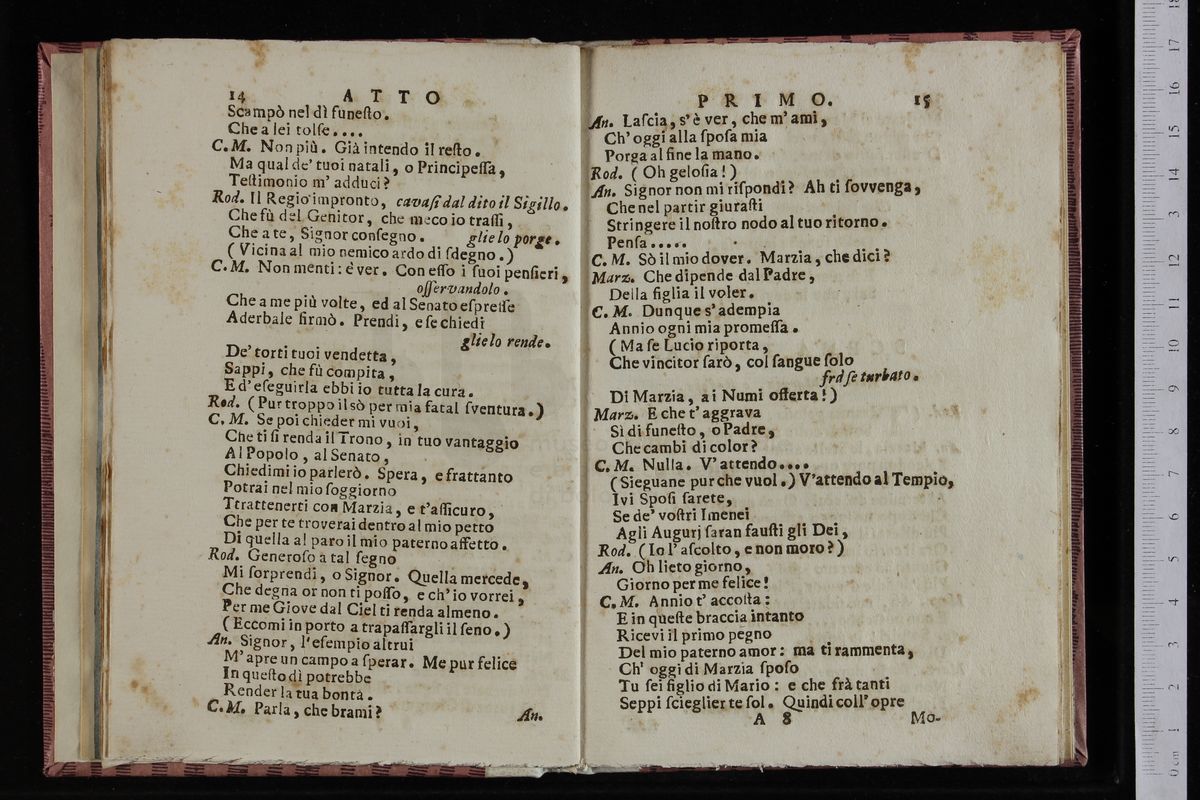 14 ATTO
Scampò nel dì funeſto.
Che a lei tolſe....
C.M. Non più. Già intendo il reſto.
Ma qual de' tuoi natali, o Principeſſa,
Teſtimonio m' adduci?
Rod. Il Regio impronto, cavaſi dal dito il Sigillo.
Che fù del Genitor, che meco io traſſi,
Che a te, Signor conſegno. glie lo porge.
(Vicina al mio nemico ardo di ſdegno.)
C.M. Non menti: è ver. Con eſſo i ſuoi penſieri,
oſſervandolo.
Che a me più volte, ed al Senato eſpreſſe
Aderbale firmò. Prendi, e ſe chiedi
glielo rende.
De' torti tuoi vendetta,
Sappi, che fù compita,
E d' eſeguirla ebbi io tutta la cura.
Rod. (Pur troppo il sò per mia fatal ſventura.)
C. M. Se poi chieder mi vuoi,
Che ti ſi renda il Trono, in tuo vantaggio
Al Popolo, al Senato,
Chiedimi io parlerò. Spera, e frattanto
Potrai nel mio ſoggiorno
Ttrattenerti con Marzia, e t'aſſicuro,
Che per te troverai dentro al mio petto
Di quella al paro il mio paterno affetto.
Rod. Generoſo a tal ſegno
Mi ſorprendi, o Signor. Quella mercede,
Che degna or non ti poſſo, e ch' io vorrei,
Per me Giove dal Ciel ti renda almeno.
(Eccomi in porto a trapaſſargli il ſeno.)
An. Signor, l'eſempio altrui
M' apre un campo a ſperar. Me pur felice
In queſto dì potrebbe
Render la tua bontà.
C.M. Parla, che brami? An.
PRIMO. 15
An. Laſcia, s' è ver, che m' ami,
Ch' oggi alla ſpoſa mia
Porga al fine la mano.
Rod. (Oh geloſia!)
An. Signor non mi riſpondi? Ah ti ſovvenga,
Che nel partir giuraſti
Stringere il noſtro nodo al tuo ritorno.
Penſa.....
C. M. Sò il mio dover. Marzia, che dici?
Marz. Che dipende dal Padre,
Della figlia il voler.
C. M. Dunque s' adempia
Annio ogni mia promeſſa.
(Ma ſe Lucio riporta,
Che vincitor ſarò, col ſangue ſolo
frà ſe turbato.
Di Marzia, a i Numi offerta!)
Marz. E che t' aggrava
Sì di funeſto, o Padre,
Che cambi di color?
C. M. Nulla. V' attendo....
(Sieguane pur che vuol.) V'attendo al Tempio,
Ivi Spoſi ſarete,
Se de' voſtri Imenei
Agli Augurj ſaran fauſti gli Dei,
Rod. (Io l' aſcolto, e non moro?)
An. Oh lieto giorno,
Giorno per me felice!
C. M. Annio t' accoſta:
E in queſte braccia intanto
Ricevi il primo pegno
Del mio paterno amor: ma ti rammenta,
Ch' oggi di Marzia ſpoſo
Tu ſei figlio di Mario: e che frà tanti
Seppi ſcieglier te ſol. Quindi coll' opre
A 8 Mo-